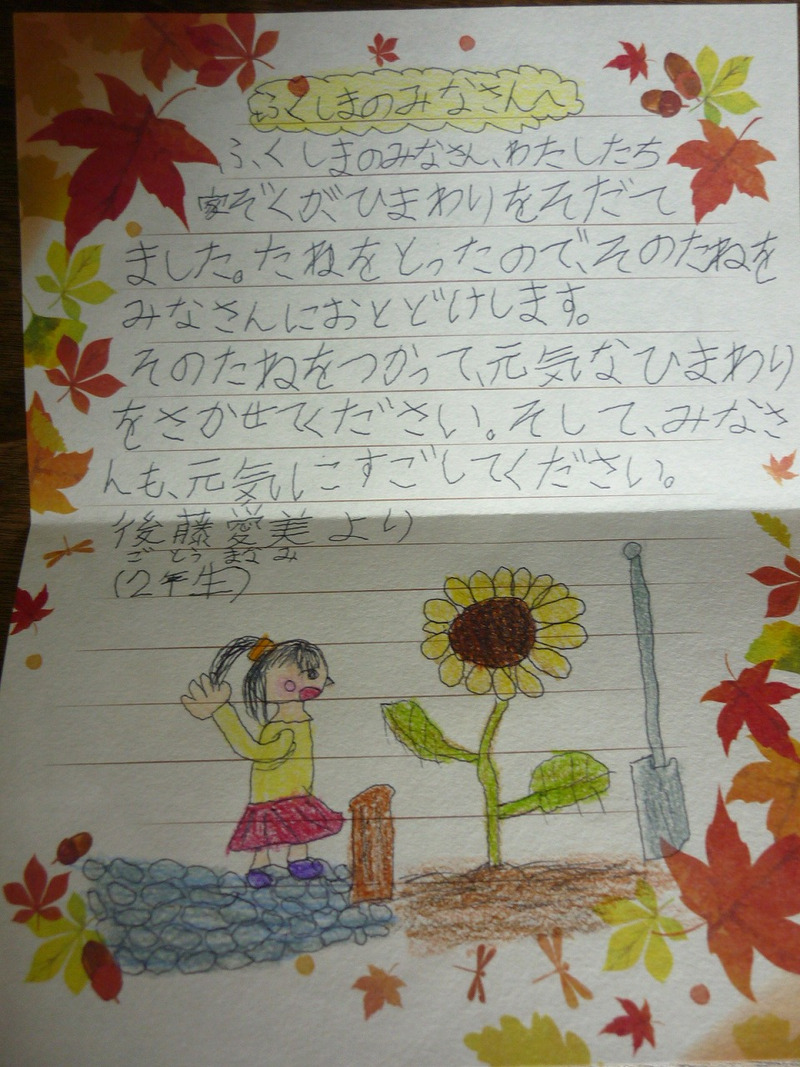 ふくしまのみなさんへ
ふくしまのみなさん、わたしたち
家ぞくが、ひまわりをそだて
ました。たねをとったので、そのたねを
みなさんにおとどけします。
そのたねをつかって、元気なひまわり
をさかせてください。そして、みなさ
んも、元気にすごしてください。
後藤愛美より
ごとうまなみ
(2年生)